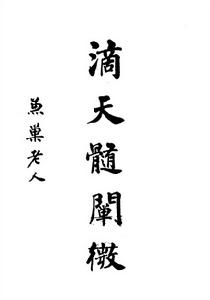 滴天髓闡微
蕉巢老人